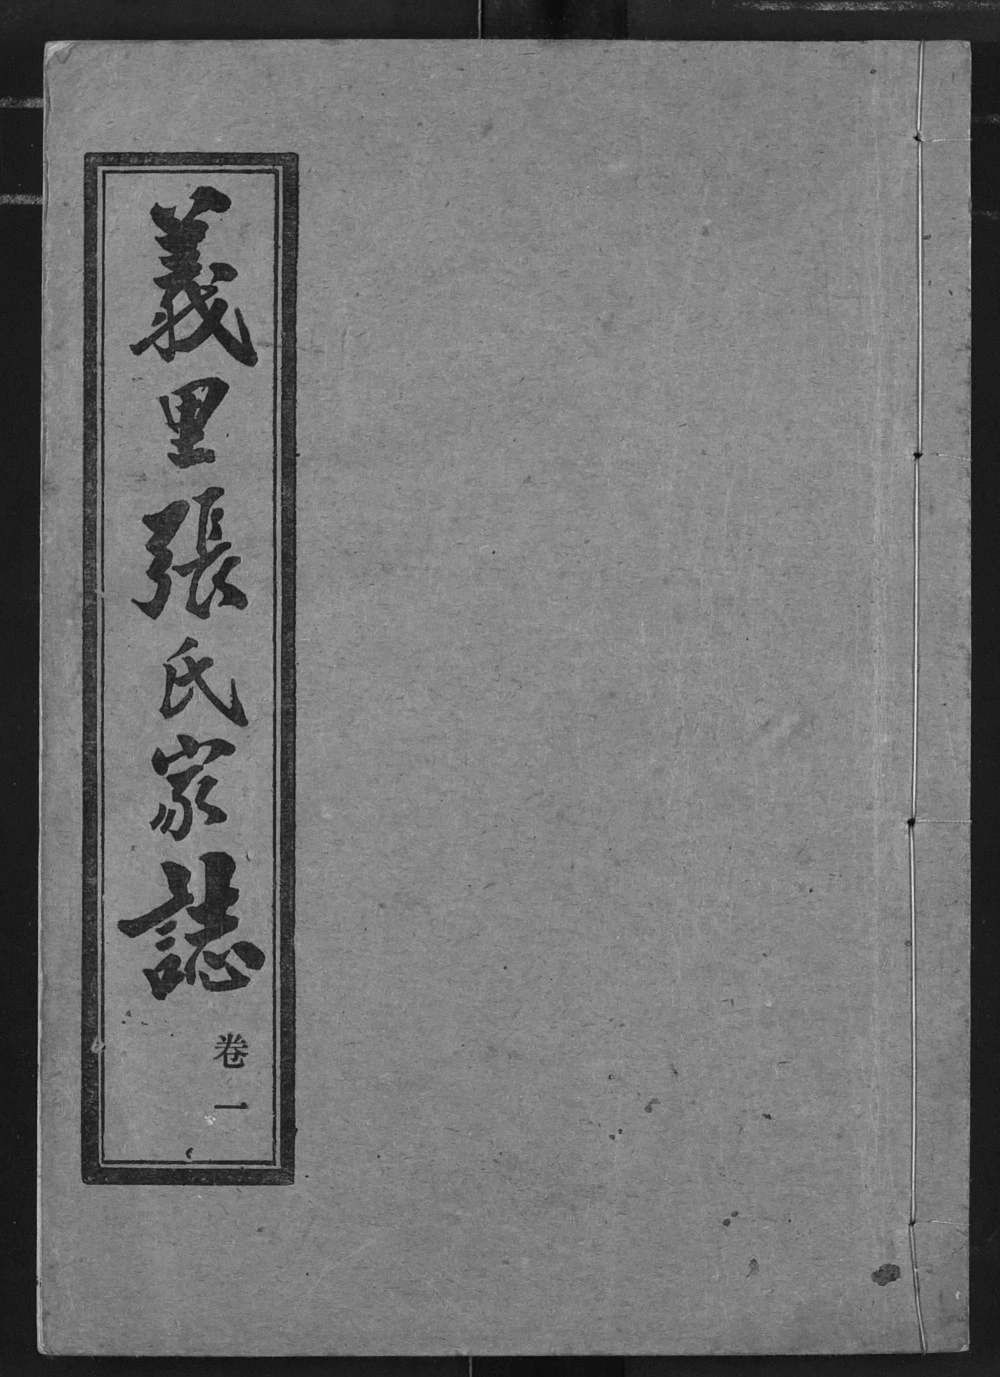 義里張氏家誌
卷一